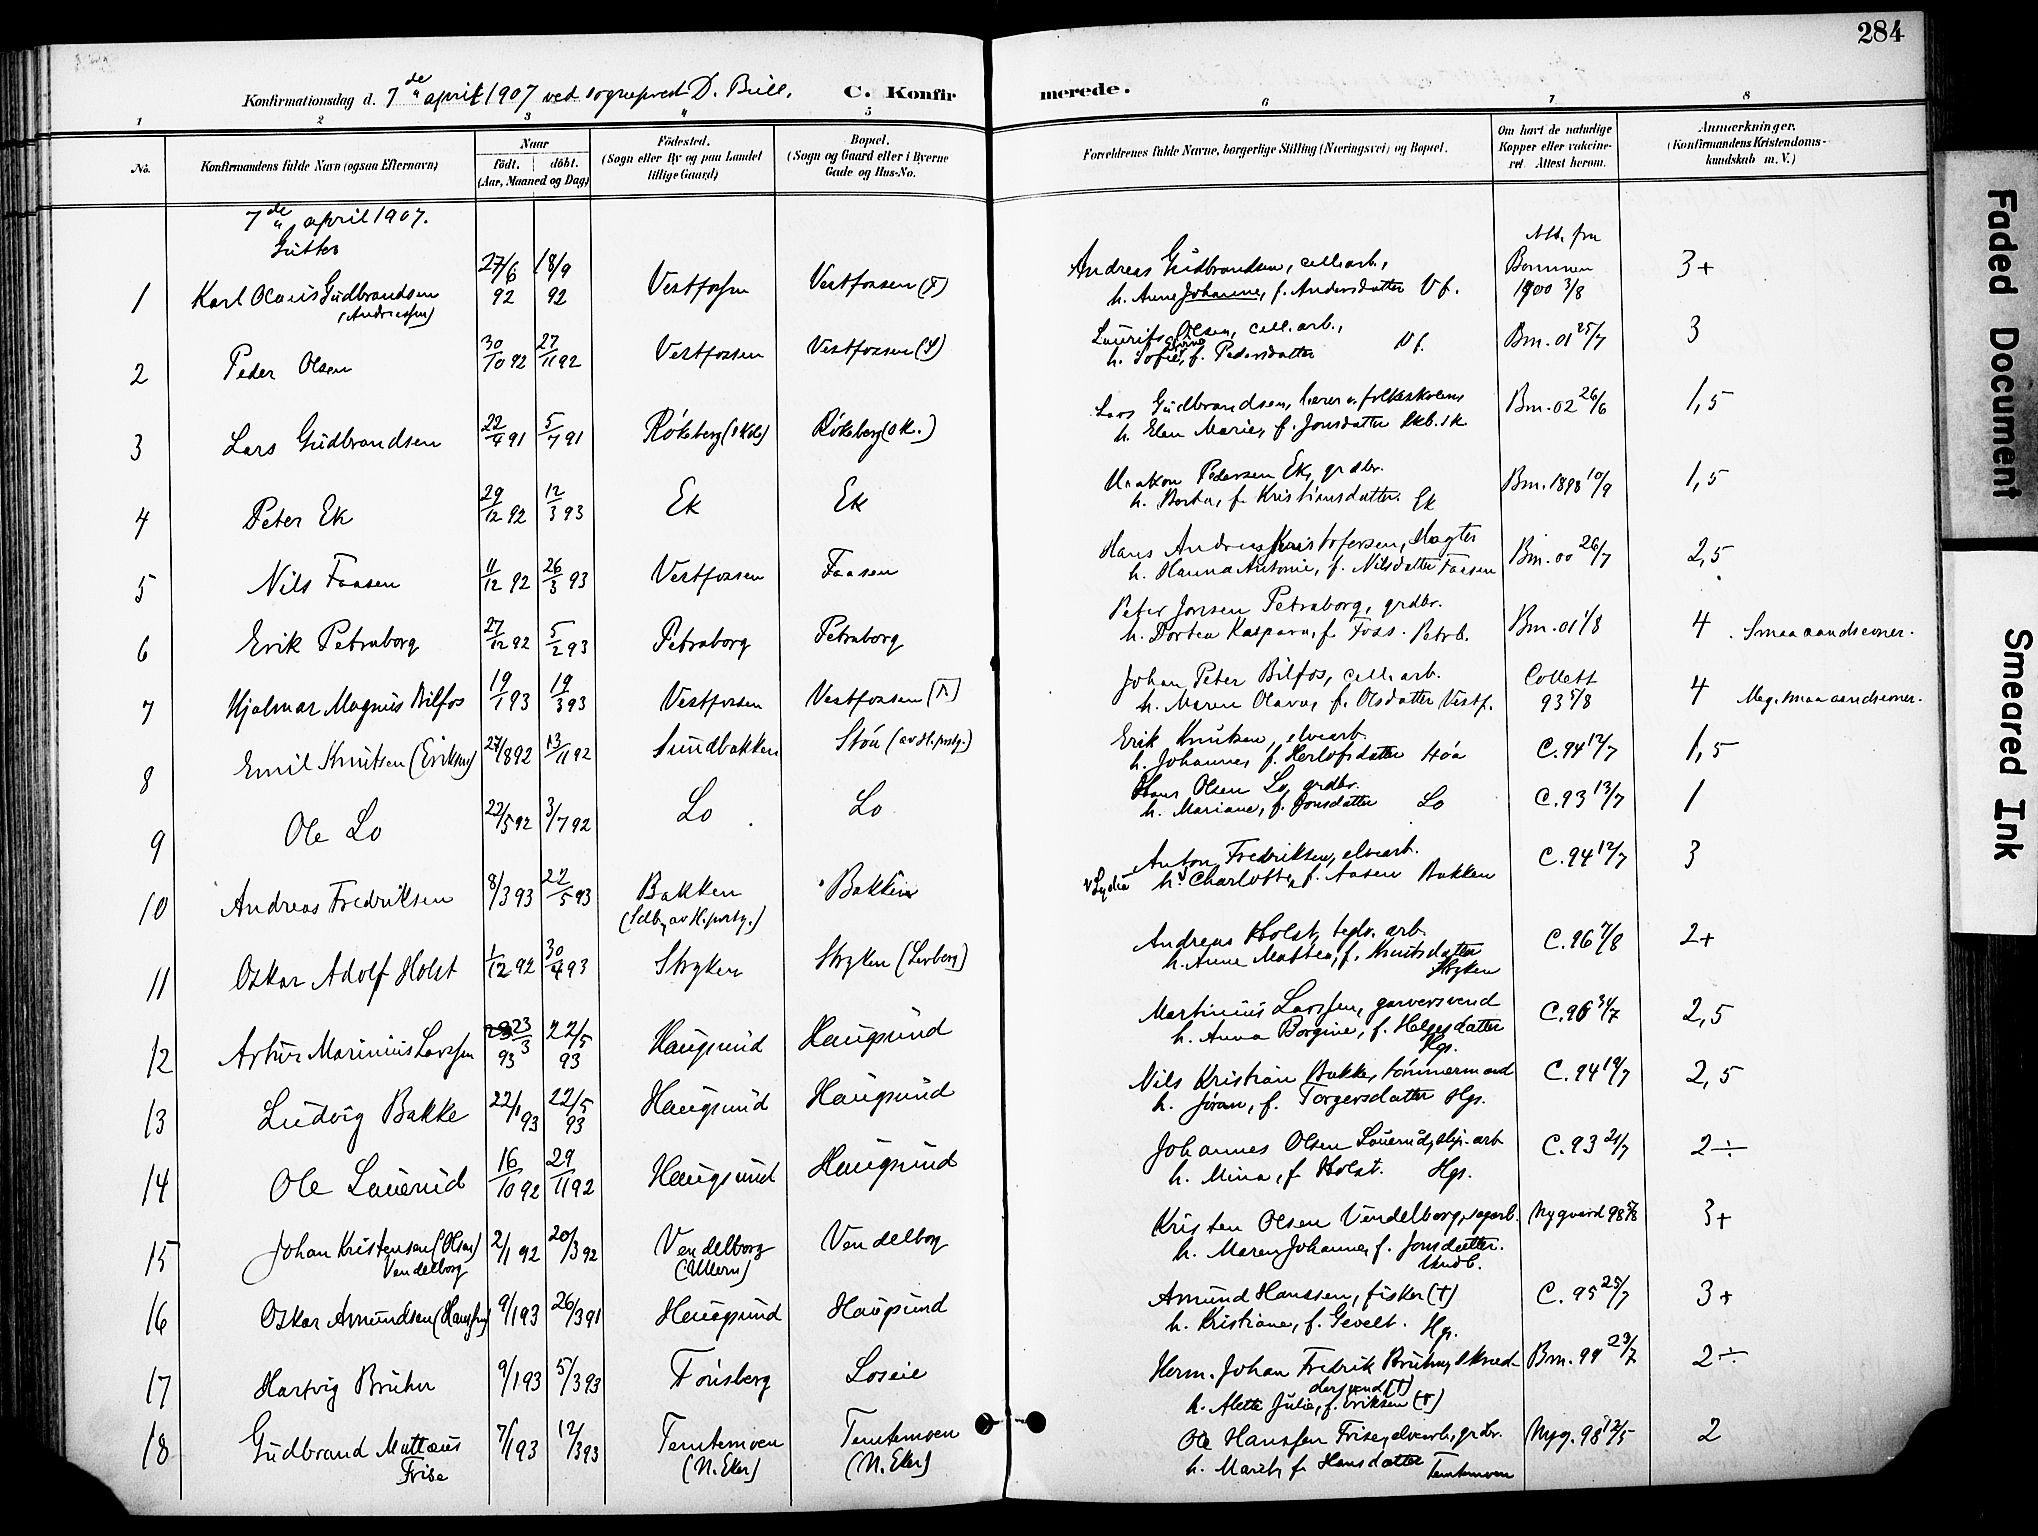 284
Konfirmationsdag d. 7de april 1907 ved sogneprest D. Bull.
C. Konfirmerede.
1 2 3 4 5 6 7 8
No.
Konfirmandens fulde Navn (ogsaa Efternavn)
Naar
födt. döbt.
(Aar, Maaned og Dag)
Födested.
(Sogn eller By og paa Landet
tillige Gaard)
Bopæl.
(Sogn og Gaard eller i Byerne
Gade og Hus-No.
Forældrenes fulde Navne, borgerlige Stilling (Næringsvei) og Bopæl.
Om havt de naturlige
Kopper eller vakcine-
ret. Attest herom.
Anmærkninger.
(Konfirmandens Kristendoms-
kundskab m. V.)
7de april 1907.
Gutter
1 Karl Olaus Gudbrandsen 27/6 92 18/9 92 Vestfossen Vestfossen (F) Andreas Gudbrandsen, cell.arb., Att. fra Bommen 1900 3/8 3+
(Andreassen) h. Anne Johanne, f. Andersdatter Vf.
2 Peder Olsen 30/10 92 27/11 92 Vestfossen Vestfossen Laurits Olsen, cell. arb., Bm. 01 25/7 3
h. Sofie, f. Pedersdatter Vf.
3 Lars Gudbrandsen 22/4 91 5/7 91 Røkeberg Røkeberg Lars Gudbrandsen, lærer v. folkeskolens Bm. 02 26/6 1,5
h. Elen Marie, f. Jonsdatter
4 Peter Ek 29/12 92 12/3 93 Ek Ek Haakon Pedersen Ek, grdbr. Bm. 1898 10/9 1,5
h. Berta, f. Kristiansdatter Ek
5 Nils Faasen 11/12 92 26/3 93 Vestfossen Faasen Hans Andreas Kristofersen, Bm. 00 26/7 2,5
h. Hanna Antonie, f. Nilsdatter Faasen
6 Erik Petraborg 27/12 92 5/2 93 Petraborg Petraborg Peter Jonsen Petraborg, grdbr. Bm. 01 1/8 4 Smaa aandsevner.
h. Dortea Kaspara, f. Foss. Petrb.
7 Hjalmar Magnus Bilfos 19/1 93 19/3 93 Vestfossen Vestfossen Johan Peter Bilfos, cell. arb. Collett 93 5/8 4 Meg. smaa aandsevner.
h. Maren Olava, f. Olsdatter Vestf.
8 Emil Knutsen (Eriksen) 27/8 92 13/11 92 Sundbakken Stöa Erik Knutsen, elvearb. C. 94 12/7 1,5
h. Johanne, f. Herlofsdatter Stöa
9 Ole Lo 22/5 92 3/7 92 Lo Lo Hans Olsen Lo, grdbr. C. 93 13/7 1
h. Mariane, f. Jonsdatter Lo
10 Andreas Fredriksen 8/3 93 22/5 93 Bakken Bakken Anton Fredriksen, elvearb. C. 94 12/7 3
Lydia h. Charlotte, f. Aasen Bakken
11 Oskar Adolf Holst 1/12 92 30/4 93 Stryken Stryken (Lerberg) Andreas Holst, teglv. arb. C. 96 7/8 2+
h. Anne Mattea, f. Knutsdatter
Stryken
12 Artur Marinius Larssen 23/3 93 22/5 93 Haugsund Haugsund Martinius Larssen, garversvend C. 96 2,5
h. Anna Borgine, f. Helgesdatter
Hgs.
13 Ludvig Bakke 22/1 93 22/5 93 Haugsund Haugsund Nils Kristian Bakke, tömmermand C. 94 19/7 2,5
h. Jöran, f. Torgersdatter Hgs.
14 Ole Lauerud 16/10 92 29/11 92 Haugsund Haugsund Johannes Olsen Lauerud, slip. arb C. 93 21/7 2÷
h. Mina, f. Holst. Hgs.
15 Johan Kristensen (Olsen) 2/1 92 20/3 92 Vendelborg Vendelborg Kristen Olsen Vendelborg, sagarb. Nygaard 98 5/8 3+
Vendelborg (Ullern) h. Maren Johanne, f. Jonsdatter.
16 Oskar Amundsen (Hanssen) 9/1 93 26/3 91 Haugsund Haugsund Amund Hanssen, fisker (†) C. 95 25/7 3+
h. Kristiane, f. Gevelt. Hgs.
17 Hartvig Bruhn 9/1 93 5/3 93 Tönsberg Loseie Herm. Johan Fredrik Bruhn, skræd- Bm. 99 23/7 2÷
dersvend (†)
h. Alette Julie, f. Eriksen (†)
18 Gudbrand Mattæus 7/1 93 12/3 93 Temtemoen Temtemoen Ole Hanssen Frise, elvearb., grdbr. Nyg. 98 12/5 2
Frise (N. Eker) (N. Eker) h. Marit, f. Hansdatter Temtemoen
Faded Document
Smeared Ink